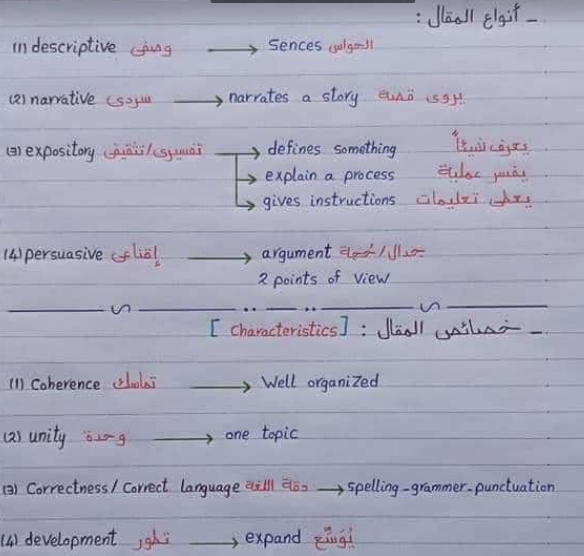 _ أنواع المقال :
(1) descriptive وصفى → Sences الحواس
(2) narrative سردى → narrates a story يروى قصة
(3) expository تفسيرى/تثقيفى → defines something يعرف شيئاً
→ explain a process يفسر عملية
→ gives instructions يعطى تعليمات
(4) persuasive إقناعى → argument جدال/حُجة
2 points of view
_ خصائص المقال : [Characteristics]
(1) Coherence تماسك → Well organized
(2) unity وحدة → one topic
(3) Correctness/Correct language دقة اللغة → spelling-grammer-punctuation
(4) development تطور → expand يُوَسِّع